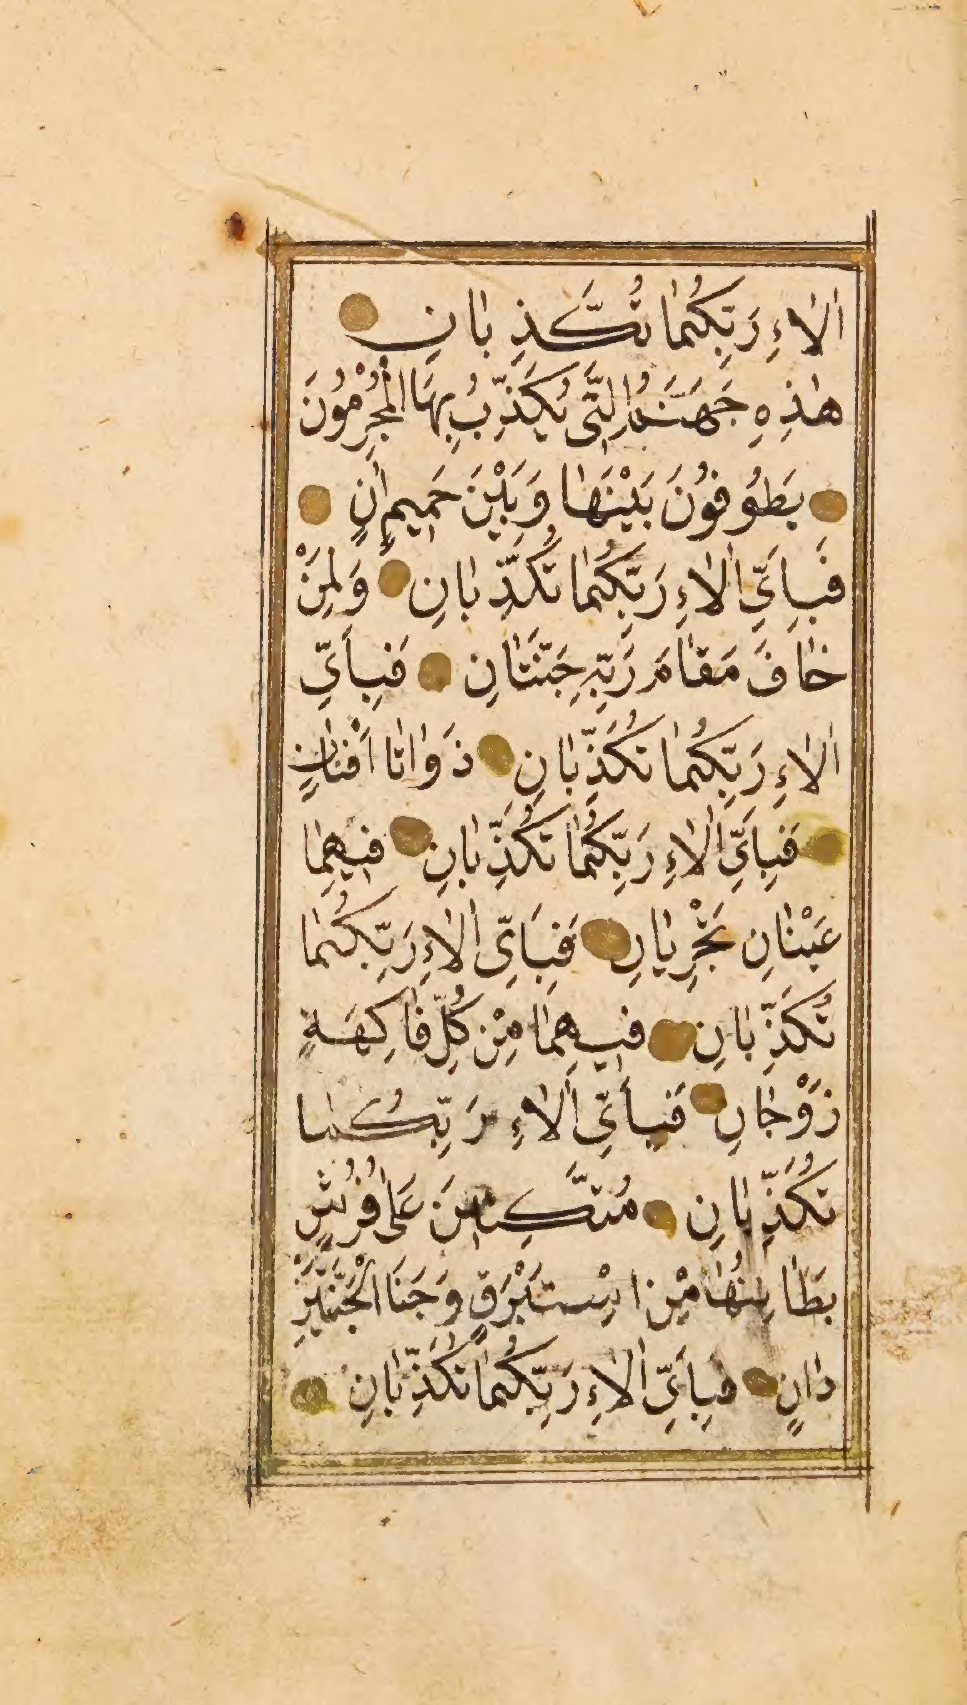 اٰلَاءِ رَبِّكُمَا تُكَذِّبَانِ
هٰذِهِ جَهَنَّمُ الَّتِى يُكَذِّبُ بِهَا الْمُجْرِمُونَ
يَطُوفُونَ بَيْنَهَا وَبَيْنَ حَمِيمٍ اٰنٍ
فَبِاَىِّ اٰلَاءِ رَبِّكُمَا تُكَذِّبَانِ وَلِمَنْ
خَافَ مَقَامَ رَبِّهِ جَنَّتَانِ فَبِاَىِّ
اٰلَاءِ رَبِّكُمَا تُكَذِّبَانِ ذَوَاتَا اَفْنَانٍ
فَبِاَىِّ اٰلَاءِ رَبِّكُمَا تُكَذِّبَانِ فِيهِمَا
عَيْنَانِ تَجْرِيَانِ فَبِاَىِّ اٰلَاءِ رَبِّكُمَا
تُكَذِّبَانِ فِيهِمَا مِنْ كُلِّ فَاكِهَةٍ
زَوْجَانِ فَبِاَىِّ اٰلَاءِ رَبِّكُمَا
تُكَذِّبَانِ مُتَّكِـِٔينَ عَلٰى فُرُشٍ
بَطَائِنُهَا مِنْ اِسْتَبْرَقٍ وَجَنَا الْجَنَّتَيْنِ
دَانٍ فَبِاَىِّ اٰلَاءِ رَبِّكُمَا تُكَذِّبَانِ